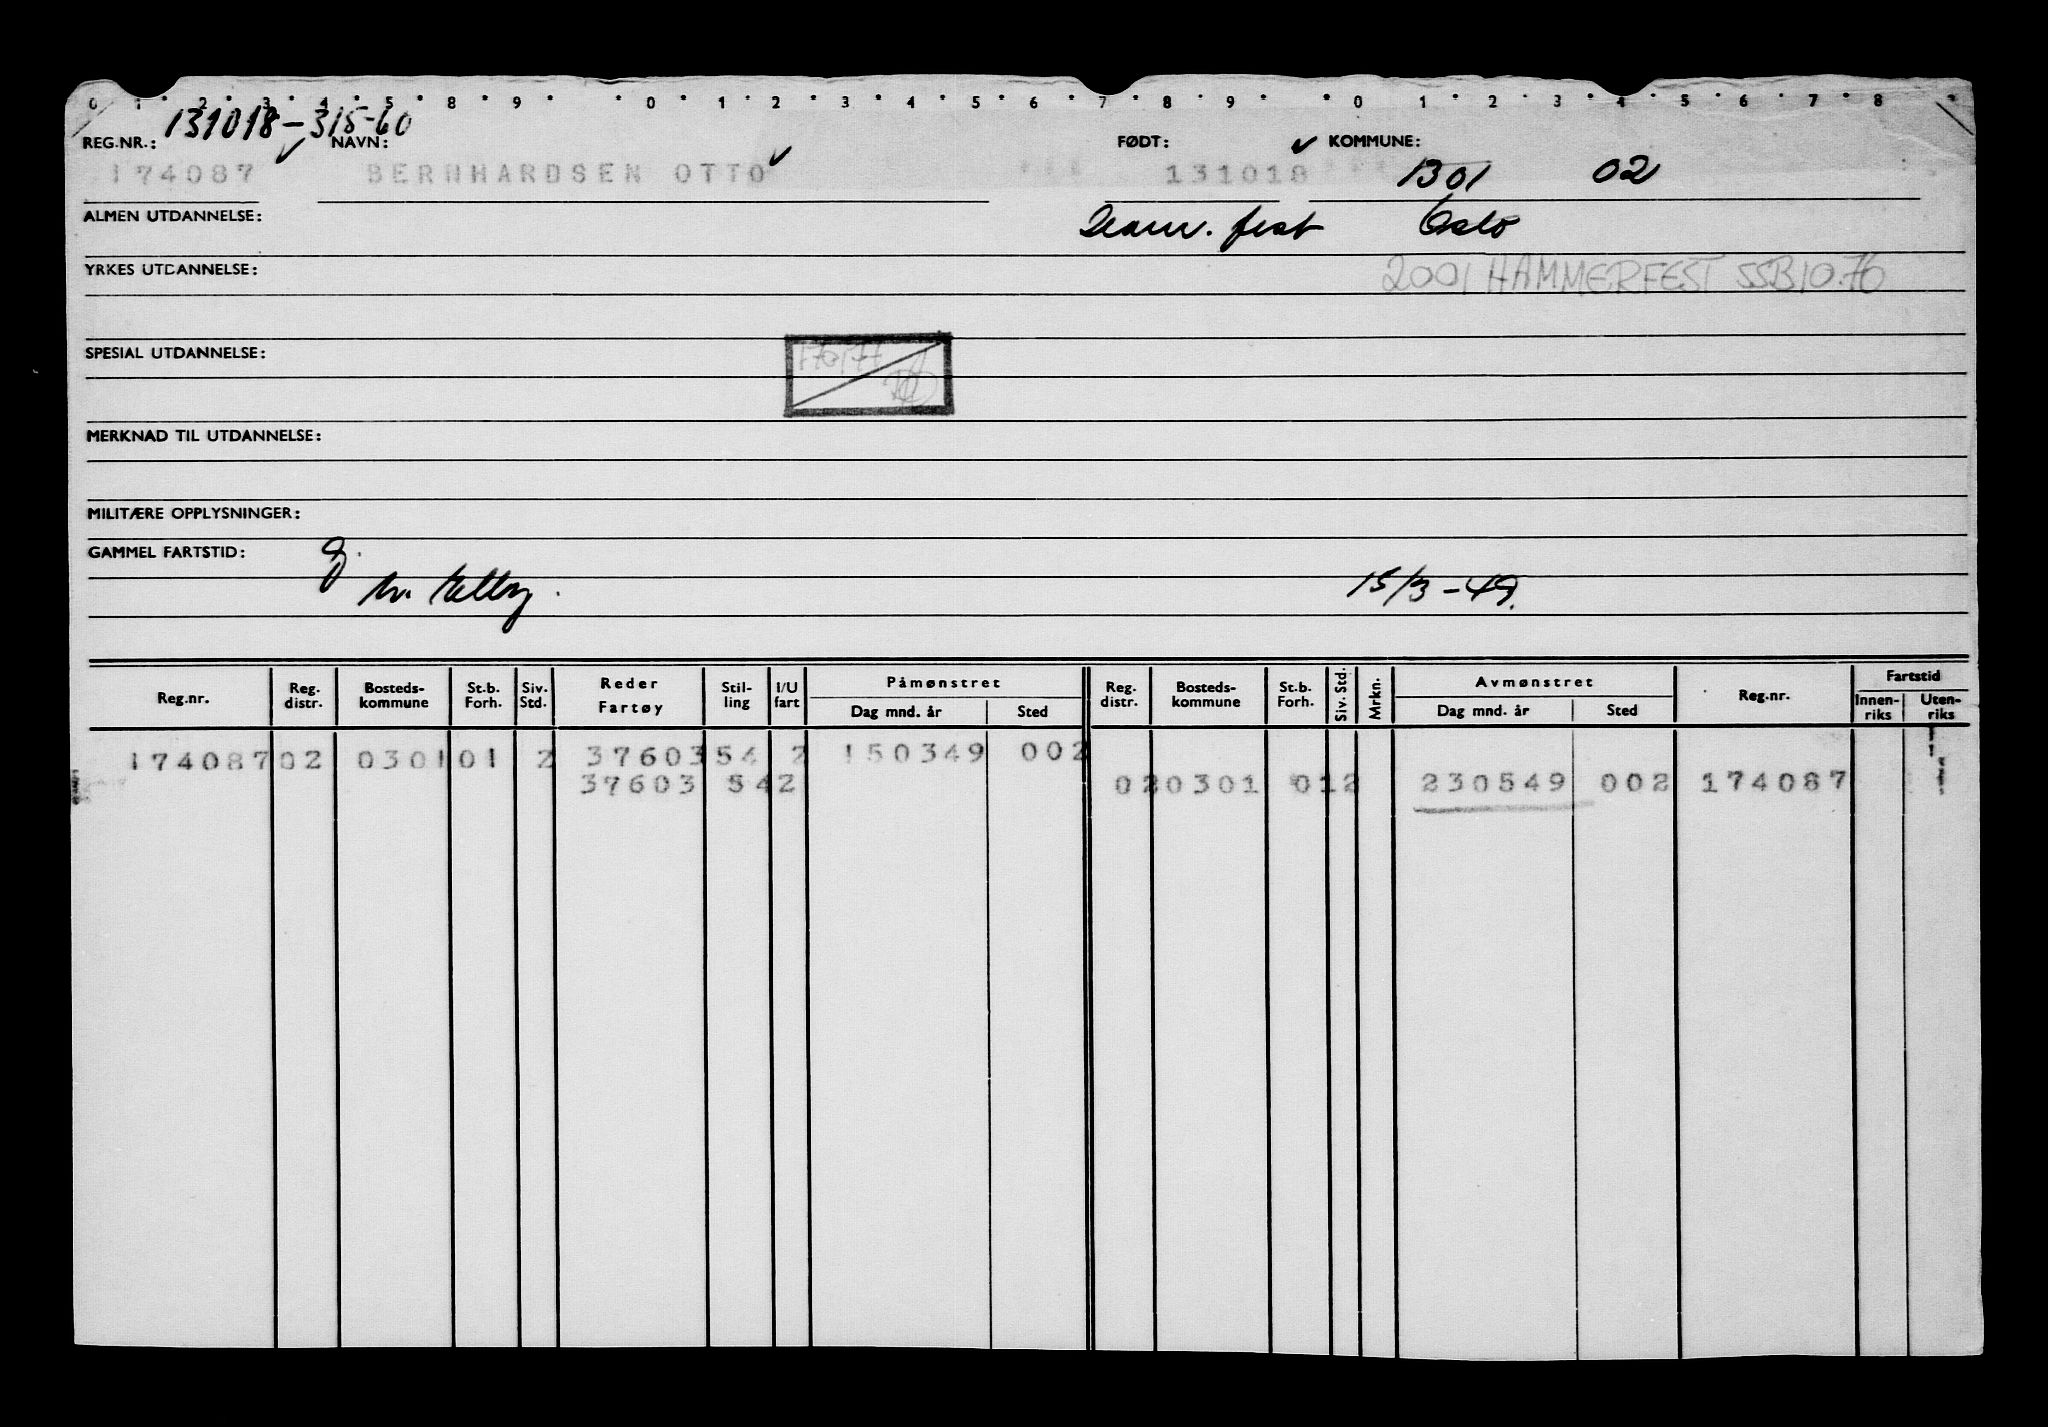 0 1 2 3 4 5 8 9 0 1 2 3 4 5 6 7 8 9 0 1 2 3 4 5 6 7 8
131018-315-60
REG.NR.: NAVN: FØDT: KOMMUNE:
174087 BERNHARDSEN OTTO 131018 1301 02
ALMEN UTDANNELSE: fest Oslo
YRKES UTDANNELSE: 2001 HAMMERFEST SSB10.76
SPESIAL UTDANNELSE:
MERKNAD TIL UTDANNELSE:
MILITÆRE OPPLYSNINGER:
GAMMEL FARTSTID:
15/3-49.
Reg.nr. Reg. distr. Bosteds-kommune St.b. Forh. Siv. Std. Reder Fartøy Stil-ling I/U fart Påmønstret Dag mnd. år Sted Reg. distr. Bosteds-kommune St.b. Forh. Siv. Std. Mrkn. Avmønstret Dag mnd. år Sted Reg.nr. Fartstid Innen-riks Uten-riks
174087 02 0301 01 2 37603 54 2 150349 002
37603 54 2 02 0301 01 2 230549 002 174087